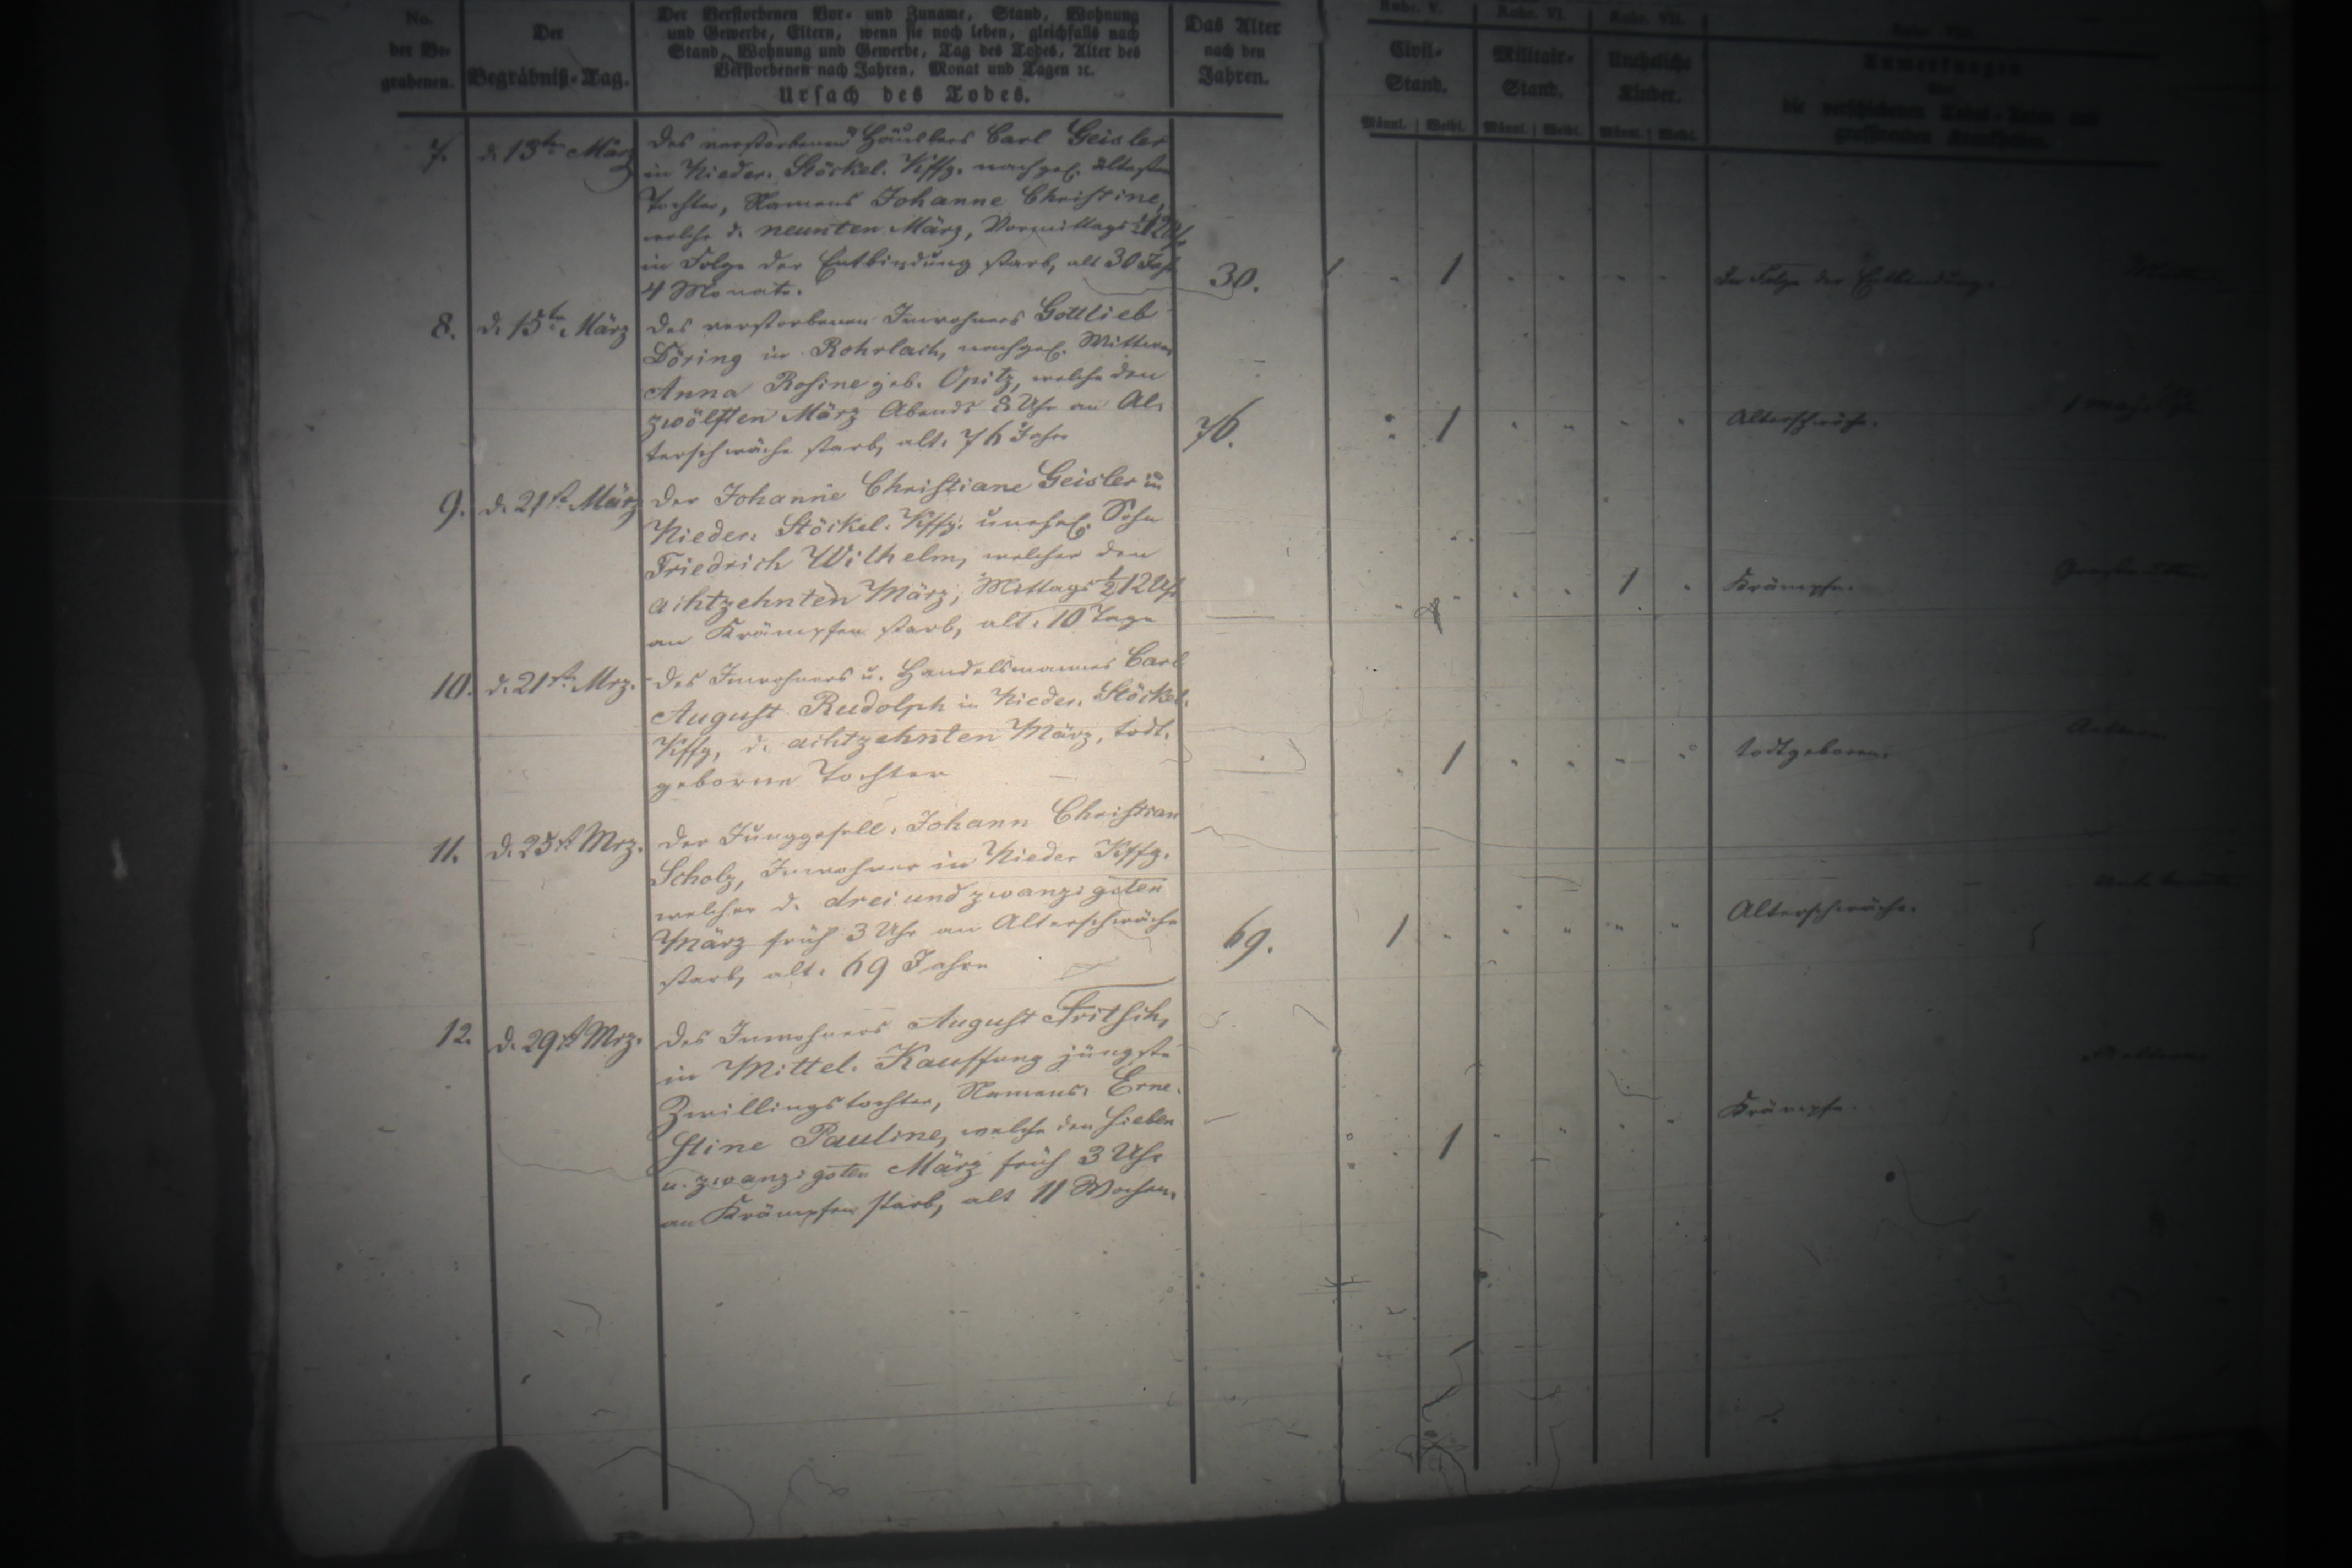 No. der Be- grabenen.
Der Begräbniß-Tag.
Der Verstorbenen Vor- und Zuname, Stand, Wohnung
und Gewerbe, Eltern, wenn sie noch leben, gleichfalls nach
Stand, Wohnung und Gewerbe, Tag des Todes, Alter des
Verstorbenen nach Jahren, Monat und Tagen ꝛc.
Ursach des Todes.
Das Alter nach den Jahren.
Rubr. V. Civil-Stand. Männl. Weibl.
Rubr. VI. Militair-Stand. Männl. Weibl.
Rubr. VII. Uneheliche Kinder. Männl. Weibl.
Anmerkungen
die verschiedenen Todes-Arten und
grassirenden Krankheiten.
7. d. 13ten März Des verstorbenen Häuslers Carl Geisler
in Nieder. Stöckel. Kffg. nachgel. älteste
Tochter, Namens Johanne Christine,
welche d. neunten März, Vormittags 12 Uhr
in Folge der Entbindung starb, alt 30 Jahr
4 Monate. 30. 1 In Folge der Entbindung.
8. d. 15ten März Des verstorbenen Inwohners Gottlieb
Döring in Rohrlach, nachgel. Wittwe
Anna Rosine geb. Opitz, welche den
zwölften März Abends 8 Uhr an Al-
terschwäche starb, alt. 76 Jahre 76. 1 Alterschwäche.
9. d. 21st März Der Johanne Christiane Geisler in
Nieder. Stöckel. Kffg. unehel. Sohn
Friedrich Wilhelm, welcher den
achtzehnten März, Mittags ½12 Uhr
an Krämpfen starb, alt. 10 Tage 1 Krämpfe.
10. d. 21st Mrz. Des Inwohners u. Handelsmannes Carl
August Rudolph in Nieder. Stöckel.
Kffg, d. achtzehnten März, todt-
geborne Tochter 1 todtgeboren.
11. d. 25st Mrz. Der Junggesell. Johann Christian
Scholz, Inwohner in Nieder Kffg.
welcher d. drei und zwanzigsten
März früh 3 Uhr an Alterschwäche
starb, alt. 69 Jahre 69. 1 Alterschwäche.
12. d. 29st Mrz. Des Inwohners August Fritsch,
in Mittel. Kauffung jüngste
Zwillingstochter, Namens. Erne-
stine Pauline, welche den sieben
u. zwanzigsten März früh 3 Uhr
an Krämpfen starb, alt 11 Wochen. 1 Krämpfe.